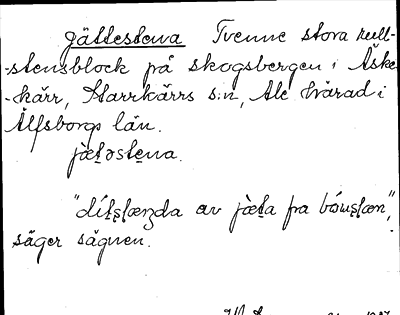 Jättestena Tvenne stora rull-
-stensblock på skogsbergen i Äske-
-kärr, Starrkärrs s:n, Ale härad i
Älfsborgs län.
jæ̀t̠əste̠na.
"dítşlæŋda av jæ̀t̠a fra bóuşlæn",
säger sägnen.